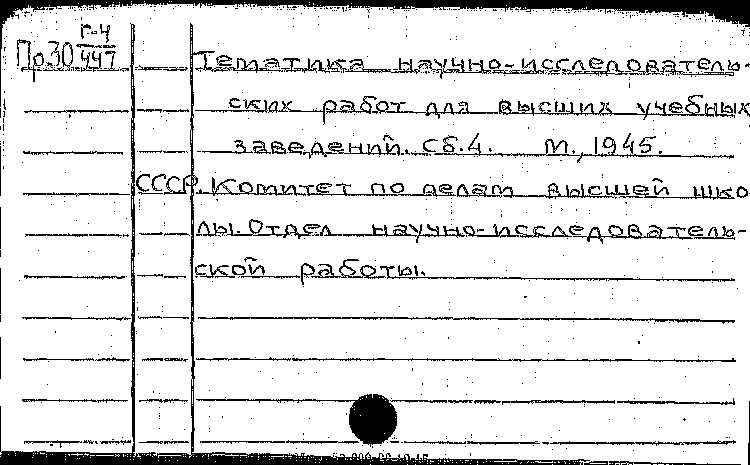 Г-4
Пр30 447
Тематика научно-исследователь-
ских работ для высших учебных
заведений. Сб.4. М., 1945.
СССР. Комитет по делам высшей шко
лы. Отдел научно-исследователь-
ской работы.